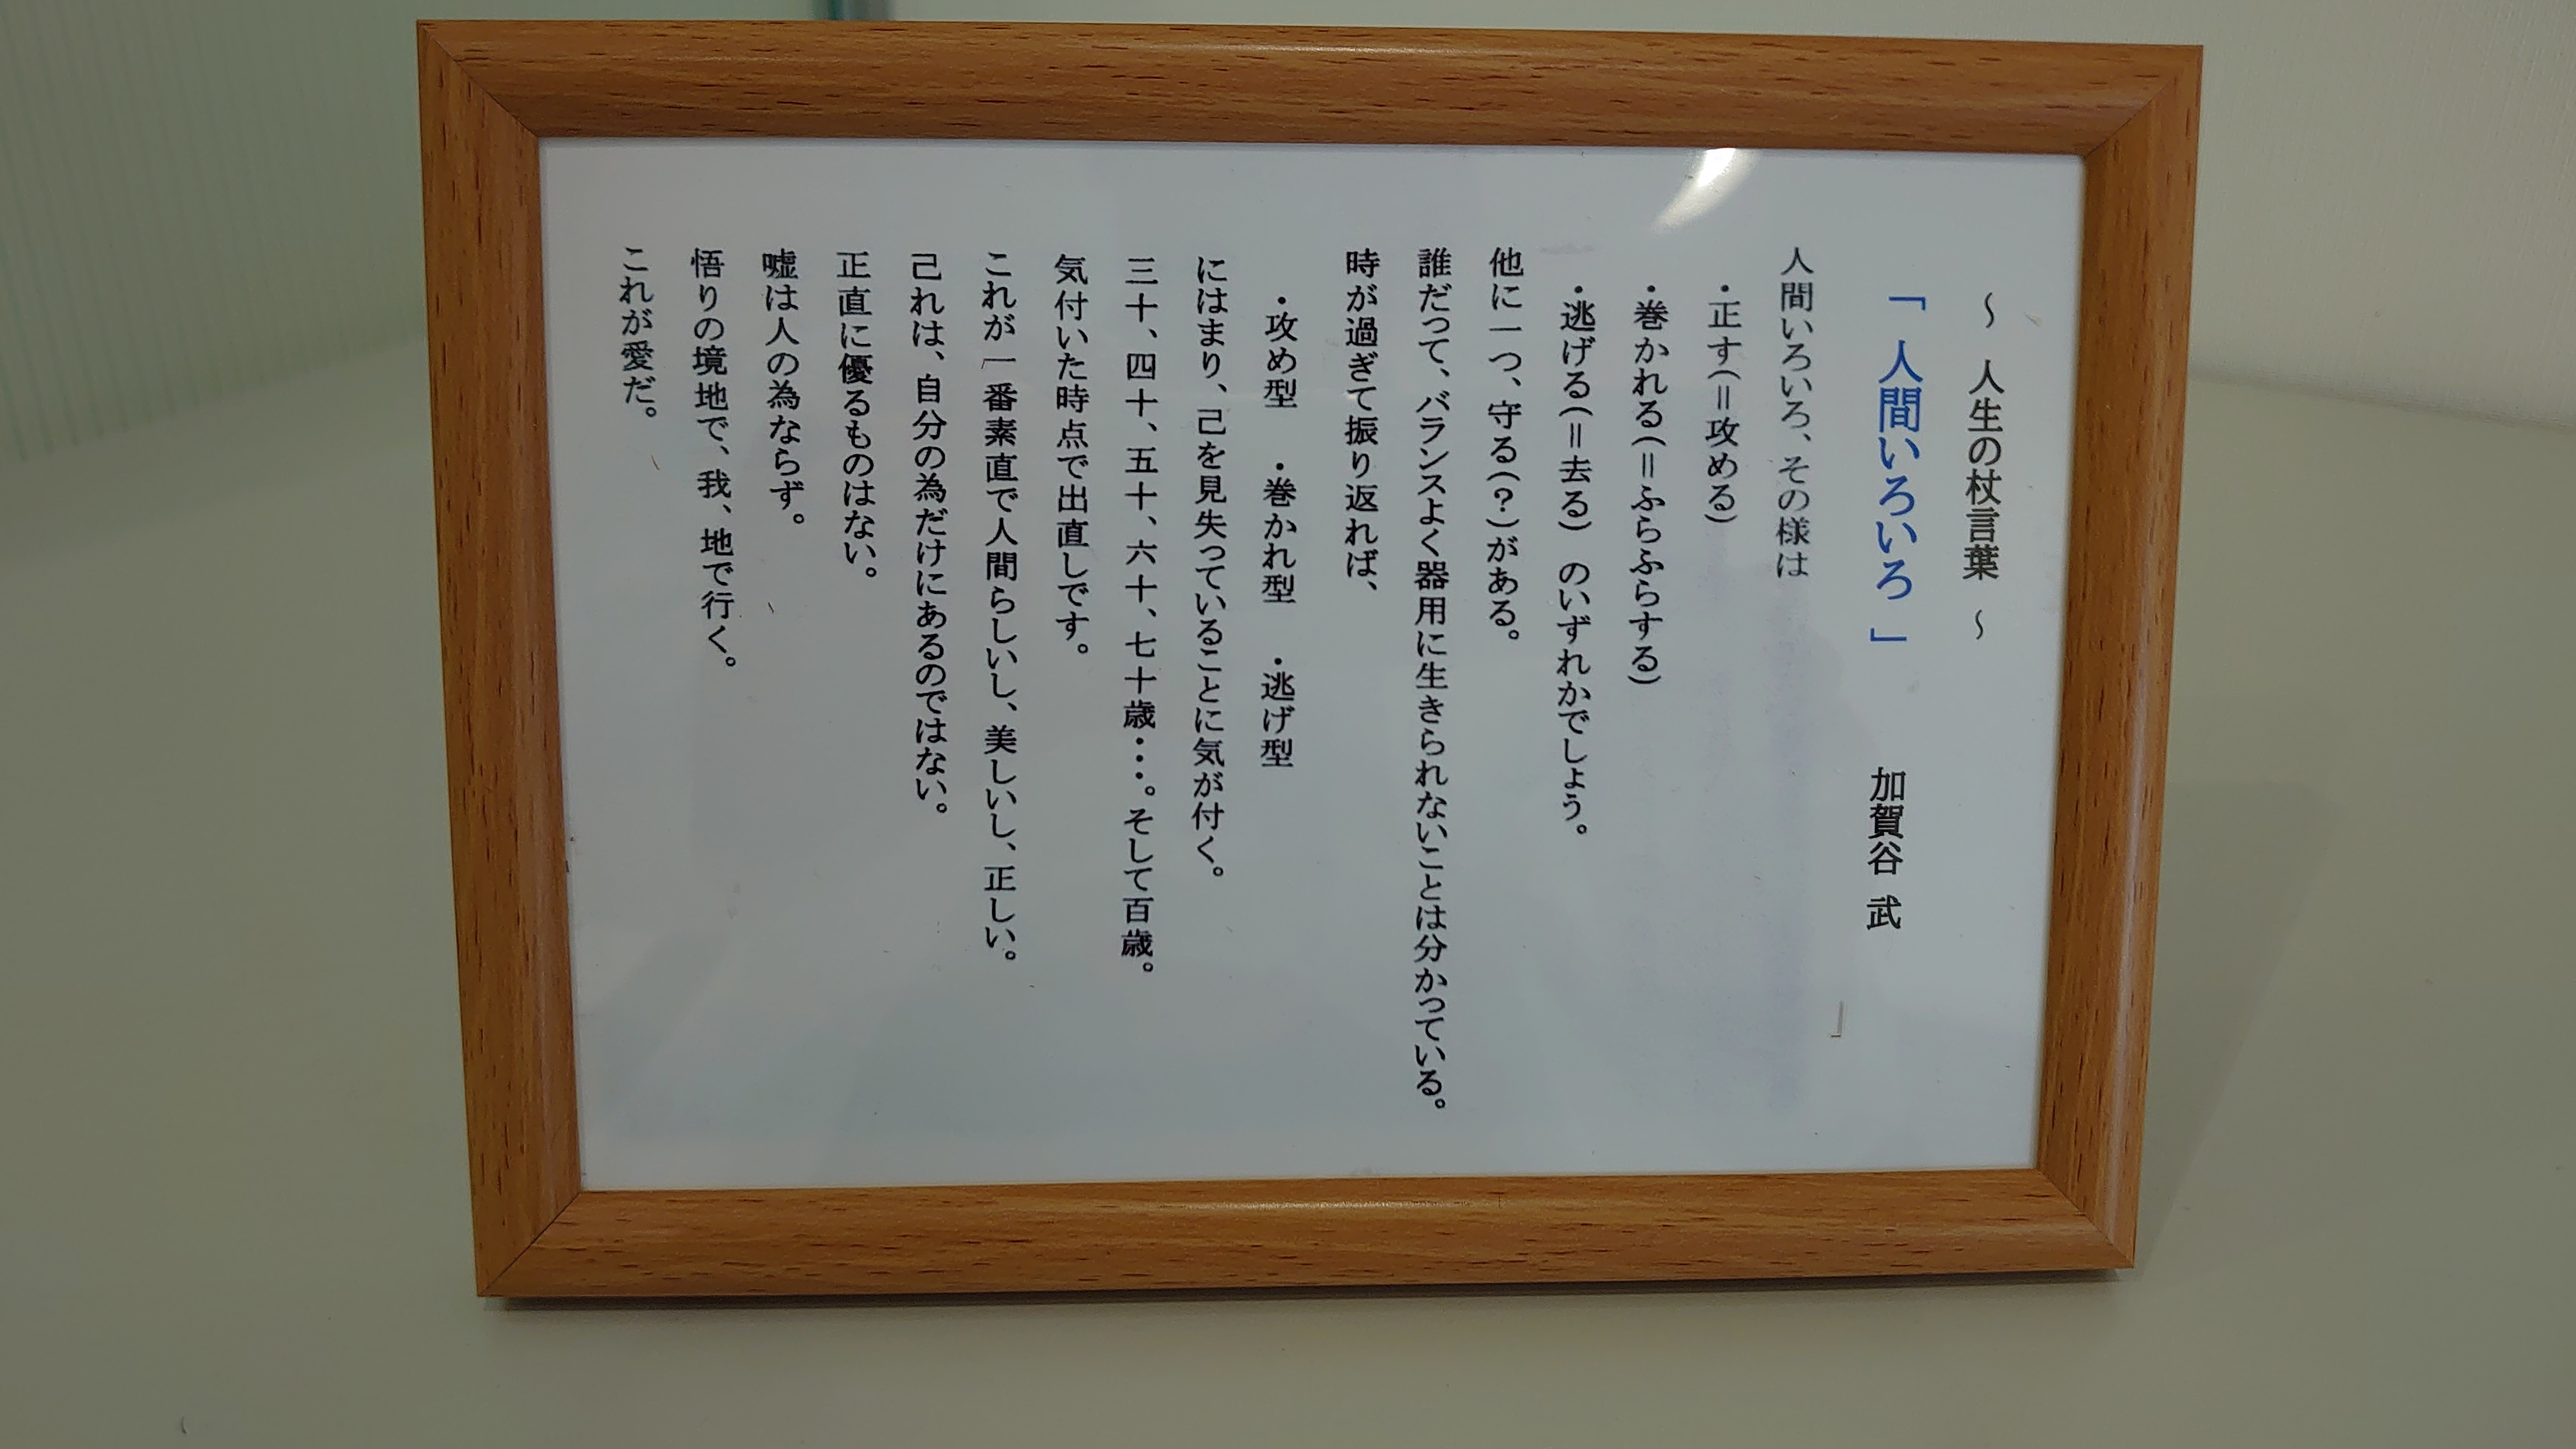 ～ 人生の杖言葉 ～
「 人間いろいろ 」 加賀谷 武
人間いろいろ、その様は
・正す(＝攻める)
・巻かれる(＝ふらふらする)
・逃げる(＝去る) のいずれかでしょう。
他に一つ、守る(？)がある。
誰だって、バランスよく器用に生きられないことは分かっている。
時が過ぎて振り返れば、
・攻め型 ・巻かれ型 ・逃げ型
にはまり、己を見失っていることに気が付く。
三十、四十、五十、六十、七十歳・・・。そして百歳。
気付いた時点で出直しです。
これが一番素直で人間らしいし、美しいし、正しい。
己れは、自分の為だけにあるのではない。
正直に優るものはない。
嘘は人の為ならず。
悟りの境地で、我、地で行く。
これが愛だ。